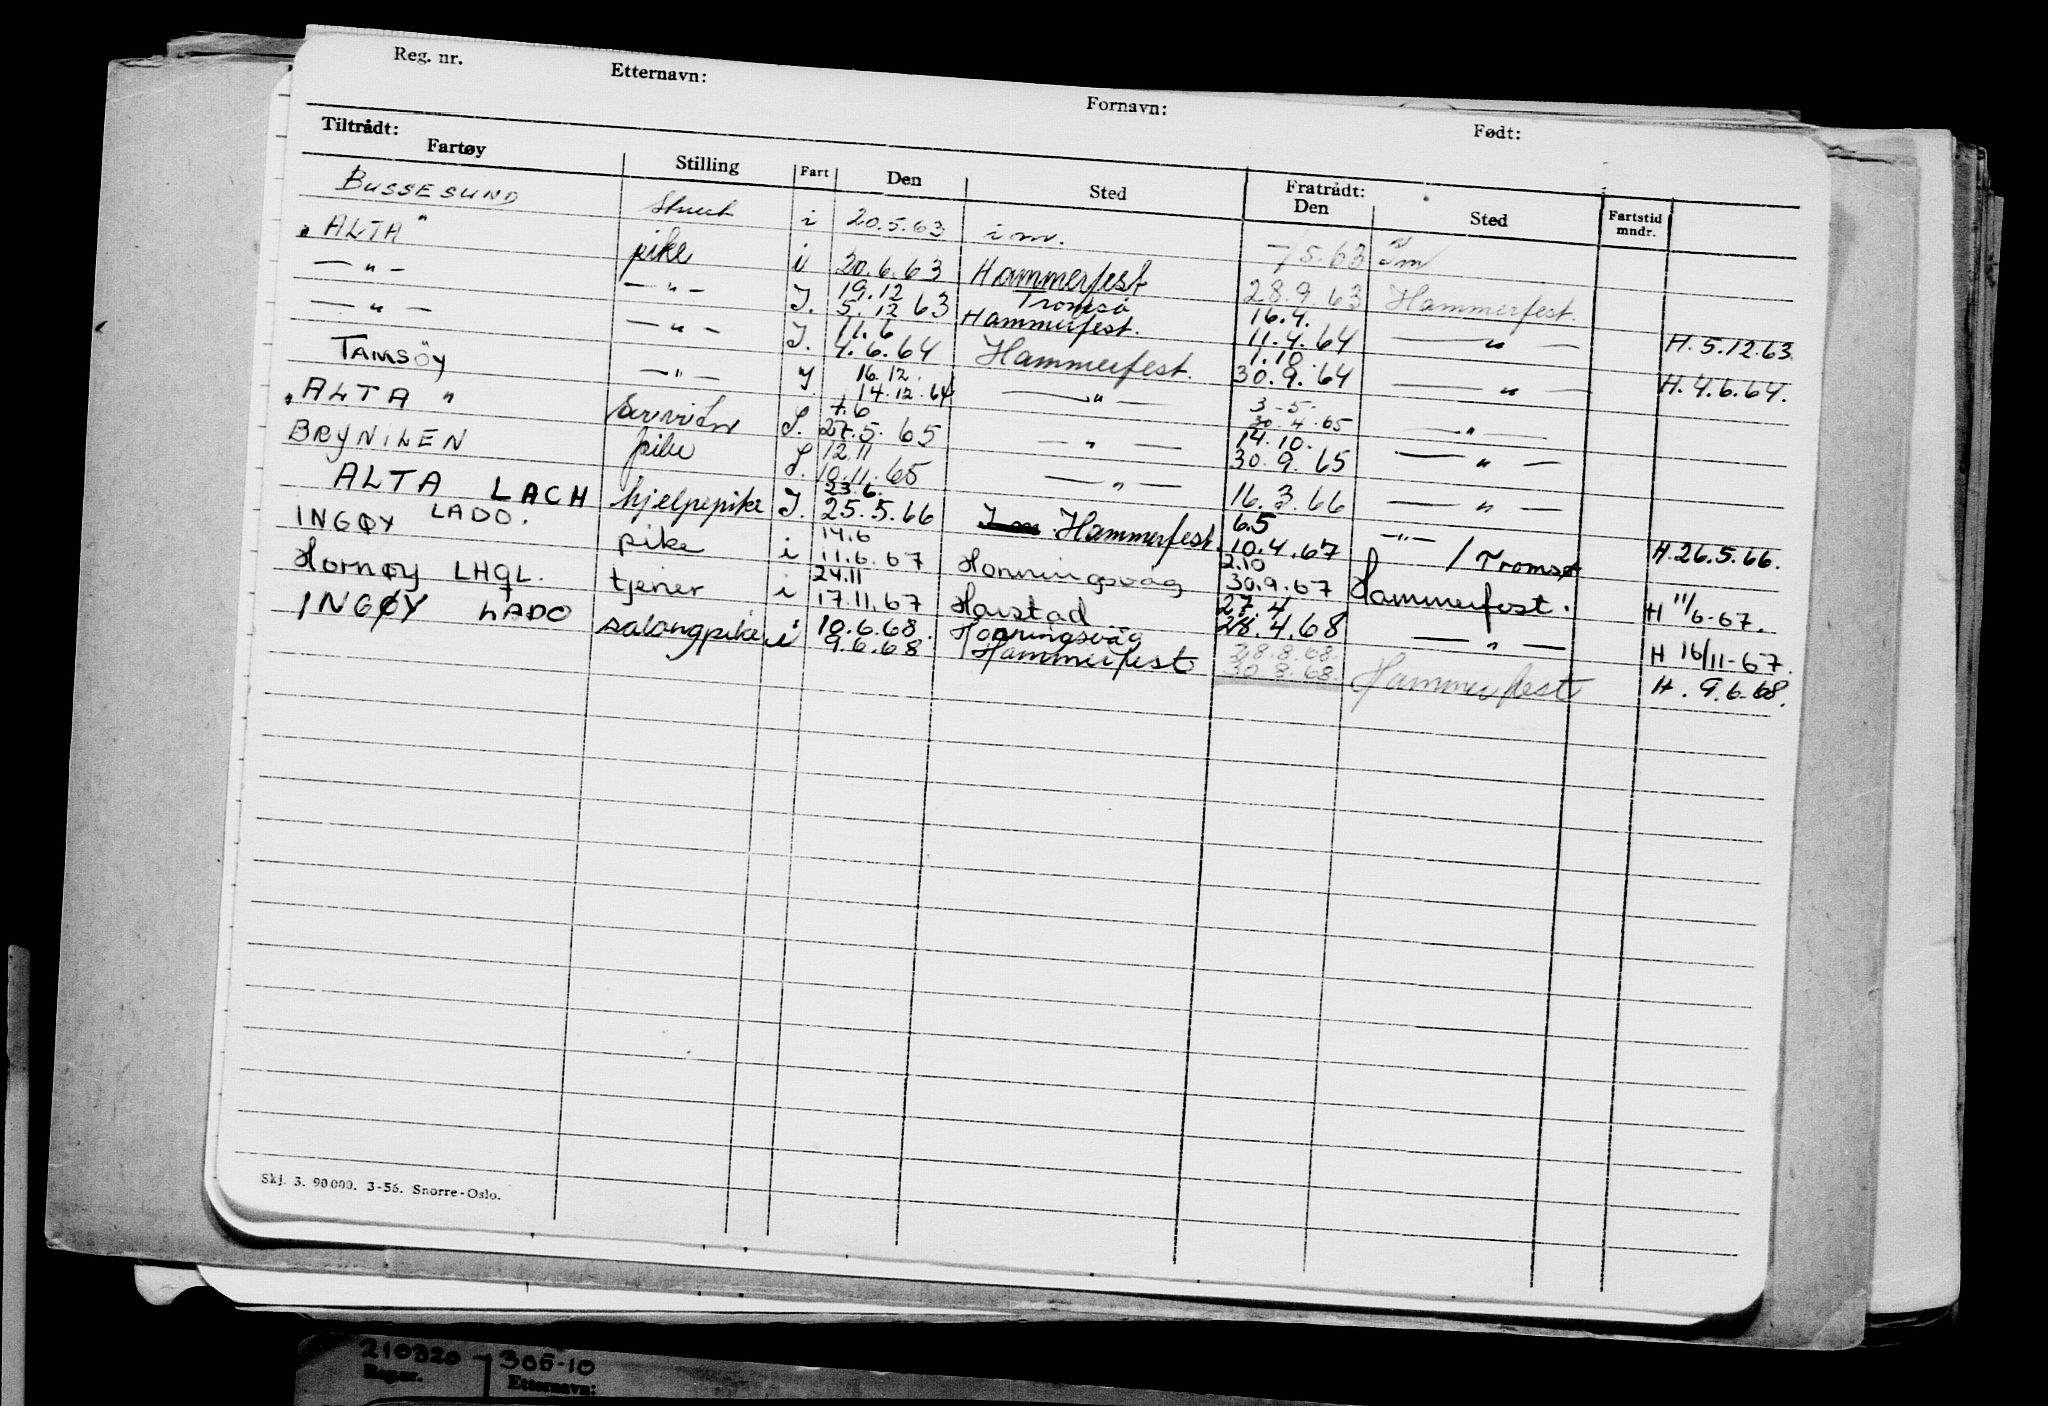 Reg. nr. Etternavn: Fornavn: Født:
Tiltrådt: Fratrådt:
Fartøy Stilling Fart Den Sted Den Sted Fartstid mndr.
BUSSESUND i 20.5.63 i m. -/5.63 Im
"ALTA" pike i 20.6.63 Hammerfest 28.9.63 Hammerfest.
— " — — " — I. 19.12 Tromsø 16.4.
5.12 63 Hammerfest. 11.4.64 — " — H. 5.12.63
— " — — " — I. 11.6 1.10
4.6.64 Hammerfest. 30.9.64 — " — H. 4.6.64.
TAMSÖY — " — I. 16.12. 3-5-
14.12.64 — " — 30.4.65 — " —
"ALTA" I. 1.6 14.10.
27.5.65 — " — 30.9.65 — " —
BRYNILEN pike I. 12.11
10.11.65 — " — 16.3.66 — " —
ALTA LACH hjelpepike I. 23.6. 6.5 — " —
25.5.66 Hammerfest. 10.4.67 / Tromsø H. 26.5.66.
INGØY LADO. pike i 14.6 2.10
11.6.67 Honningsvåg 30.9.67 Hammerfest. H 11/6-67.
Hornøy LHQL. tjener i 24.11 27.4
17.11.67 Harstad 28.4.68 — " — H 16/11-67.
INGØY LADO salongpike i 10.6.68. Honningsvåg 28.8.68.
9.6.68 Hammerfest 30.8.68. Hammerfest H. 9.6.68.
Skj. 3. 90 000. 3-56. Snorre-Oslo.
210320 - 305-10
Reg.nr. Etternavn: